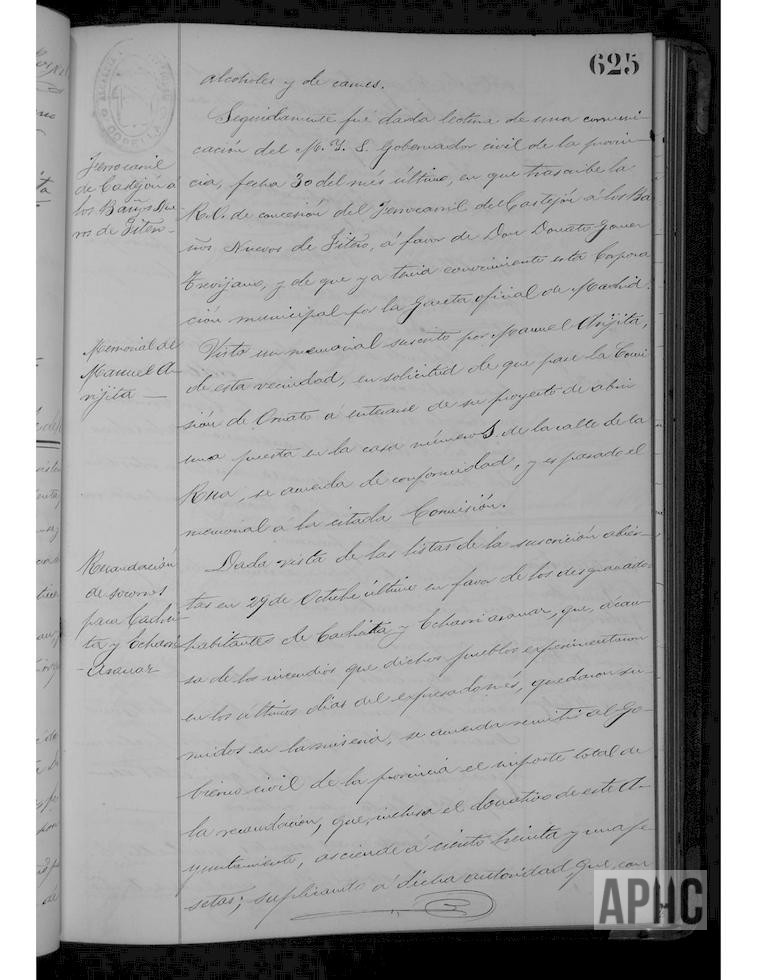 625
alcoholes y de carnes.
Seguidamente fué dada lectura de una comuni-
cación del M. Y. S. Gobernador civil de la provin-
cia, fecha 30 del més último, en que trascribe la
R.O. de concesión del Ferrocarril de Castejón á los Ba
ños Nuevos de Fitero, á favor de Don Donato Gomez
Trevijano, y de que ya tenia conocimiento esta Corpora
ción municipal por la Gaceta oficial de Madrid.
Ferrocarril
de Castejón á
los Baños Nue
vos de Fitero-
Visto un memorial suscrito por Manuel Arijita,
de esta vecindad, en solicitud de que pase la Comi
sión de Ornato á enterarse de su proyecto de abrir
una puerta en la casa número 5 de la calle de la
Rua, se acuerda de conformidad, y es pasado el
memorial á la citada Comisión.
Memorial de
Manuel A-
rijita —
Dada vista de las listas de la suscrición abier-
tas en 29 de Octubre último en favor de los desgraciados
habitantes de Cadreita y Echarri aranaz, que, á cau-
sa de los incendios que dichos pueblos experimentaron
en los últimos dias del expresado més, quedaron su-
midos en la miseria, se acuerda remitir al Go-
bierno civil de la provincia el importe total de
la recaudación, que, inclusa el donativo de este A-
yuntamiento, asciende á ciento treinta y una pe
setas; suplicando á dicha autoridad, que, con
Recaudación
de socorros
para Cadrei-
ta y Echarri
-Aranaz
ALCALDIA
CORELLA
APHC